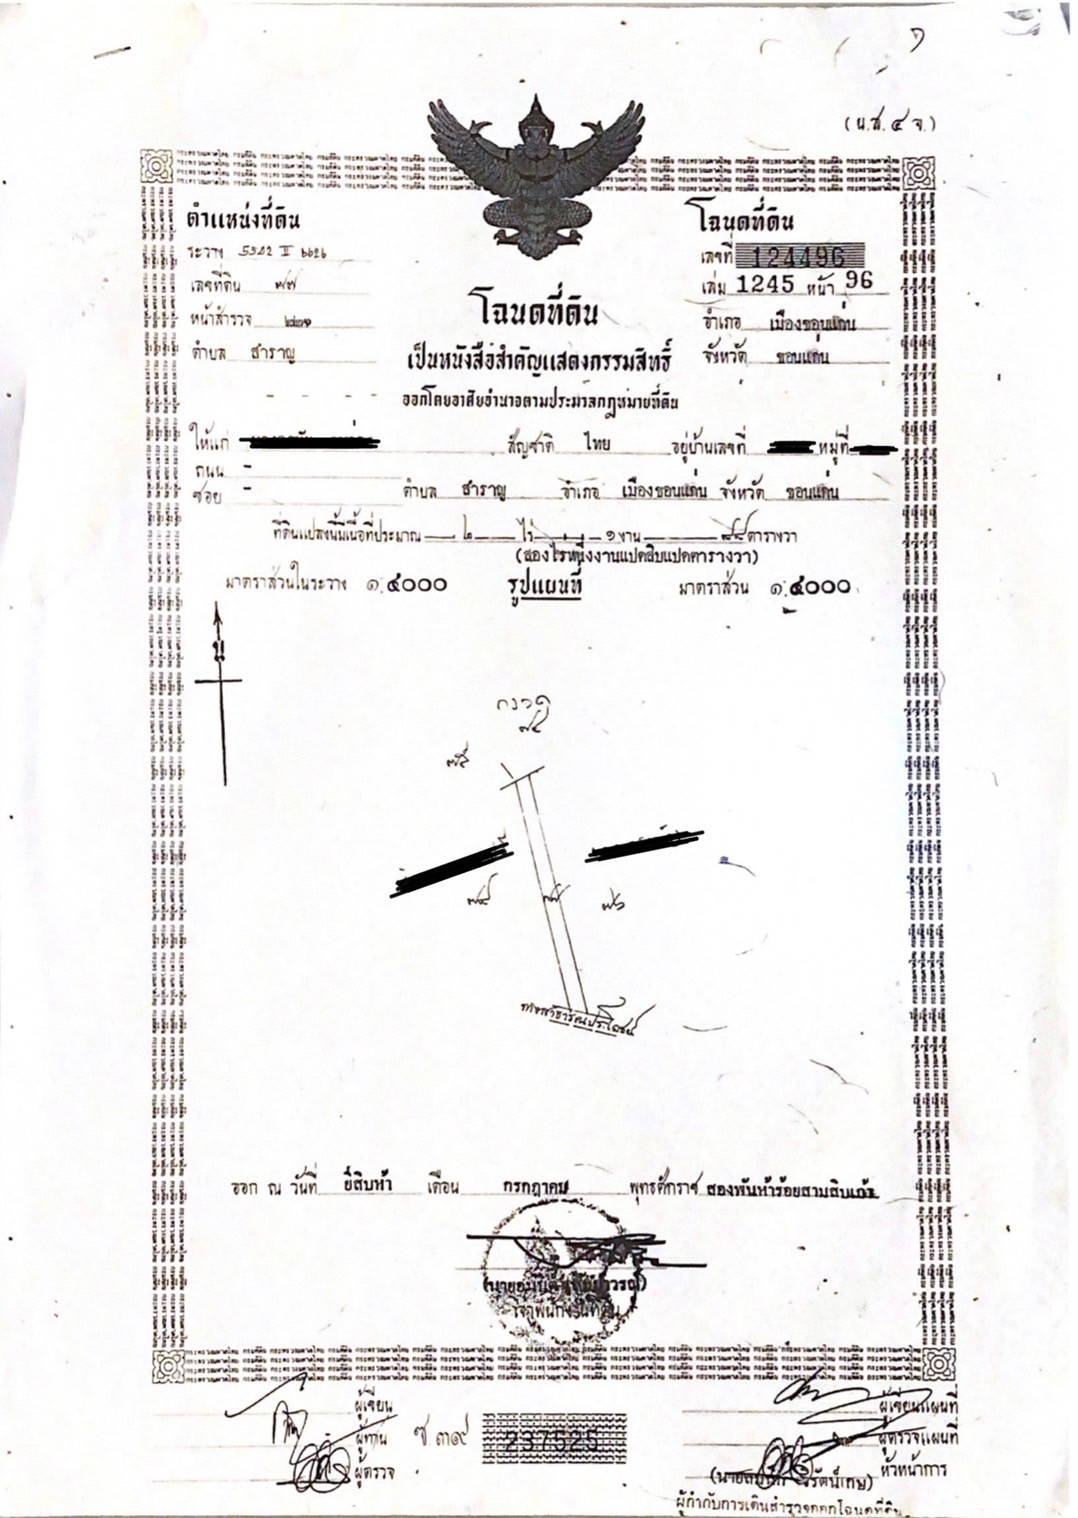 ๑
(น.ส.๔ จ.)
ตำแหน่งที่ดิน
โฉนดที่ดิน
ระวาง 5542 II ๒๖๒๖
เลขที่ 124496
เลขที่ดิน ๗๗
เล่ม 1245 หน้า 96
โฉนดที่ดิน
หน้าสำรวจ
อำเภอ เมืองขอนแก่น
ตำบล สำราญ
จังหวัด ขอนแก่น
เป็นหนังสือสำคัญแสดงกรรมสิทธิ์
ออกโดยอาศัยอำนาจตามประมวลกฎหมายที่ดิน
ให้แก่ สัญชาติ ไทย อยู่บ้านเลขที่ หมู่ที่
ถนน -
ซอย - ตำบล สำราญ อำเภอ เมืองขอนแก่น จังหวัด ขอนแก่น
ที่ดินแปลงนี้มีเนื้อที่ประมาณ ๒ ไร่ ๑ งาน ๘๘ ตารางวา
(สองไร่หนึ่งงานแปดสิบแปดตารางวา)
มาตราส่วนในระวาง ๑:๔๐๐๐ รูปแผนที่ มาตราส่วน ๑:๔๐๐๐
น
๗๔
๗๕
๗๗
๗๖
ทางสาธารณประโยชน์
ออก ณ วันที่ ยี่สิบห้า เดือน กรกฎาคม พุทธศักราช สองพันห้าร้อยสามสิบเก้า
เจ้าพนักงานที่ดิน
ผู้เขียน
ผู้เขียนแผนที่
ผู้ทาน
ซ.๓๙ 237525
ผู้ตรวจแผนที่
ผู้ตรวจ
หัวหน้าการ
ผู้กำกับการเดินสำรวจออกโฉนดที่ดิน